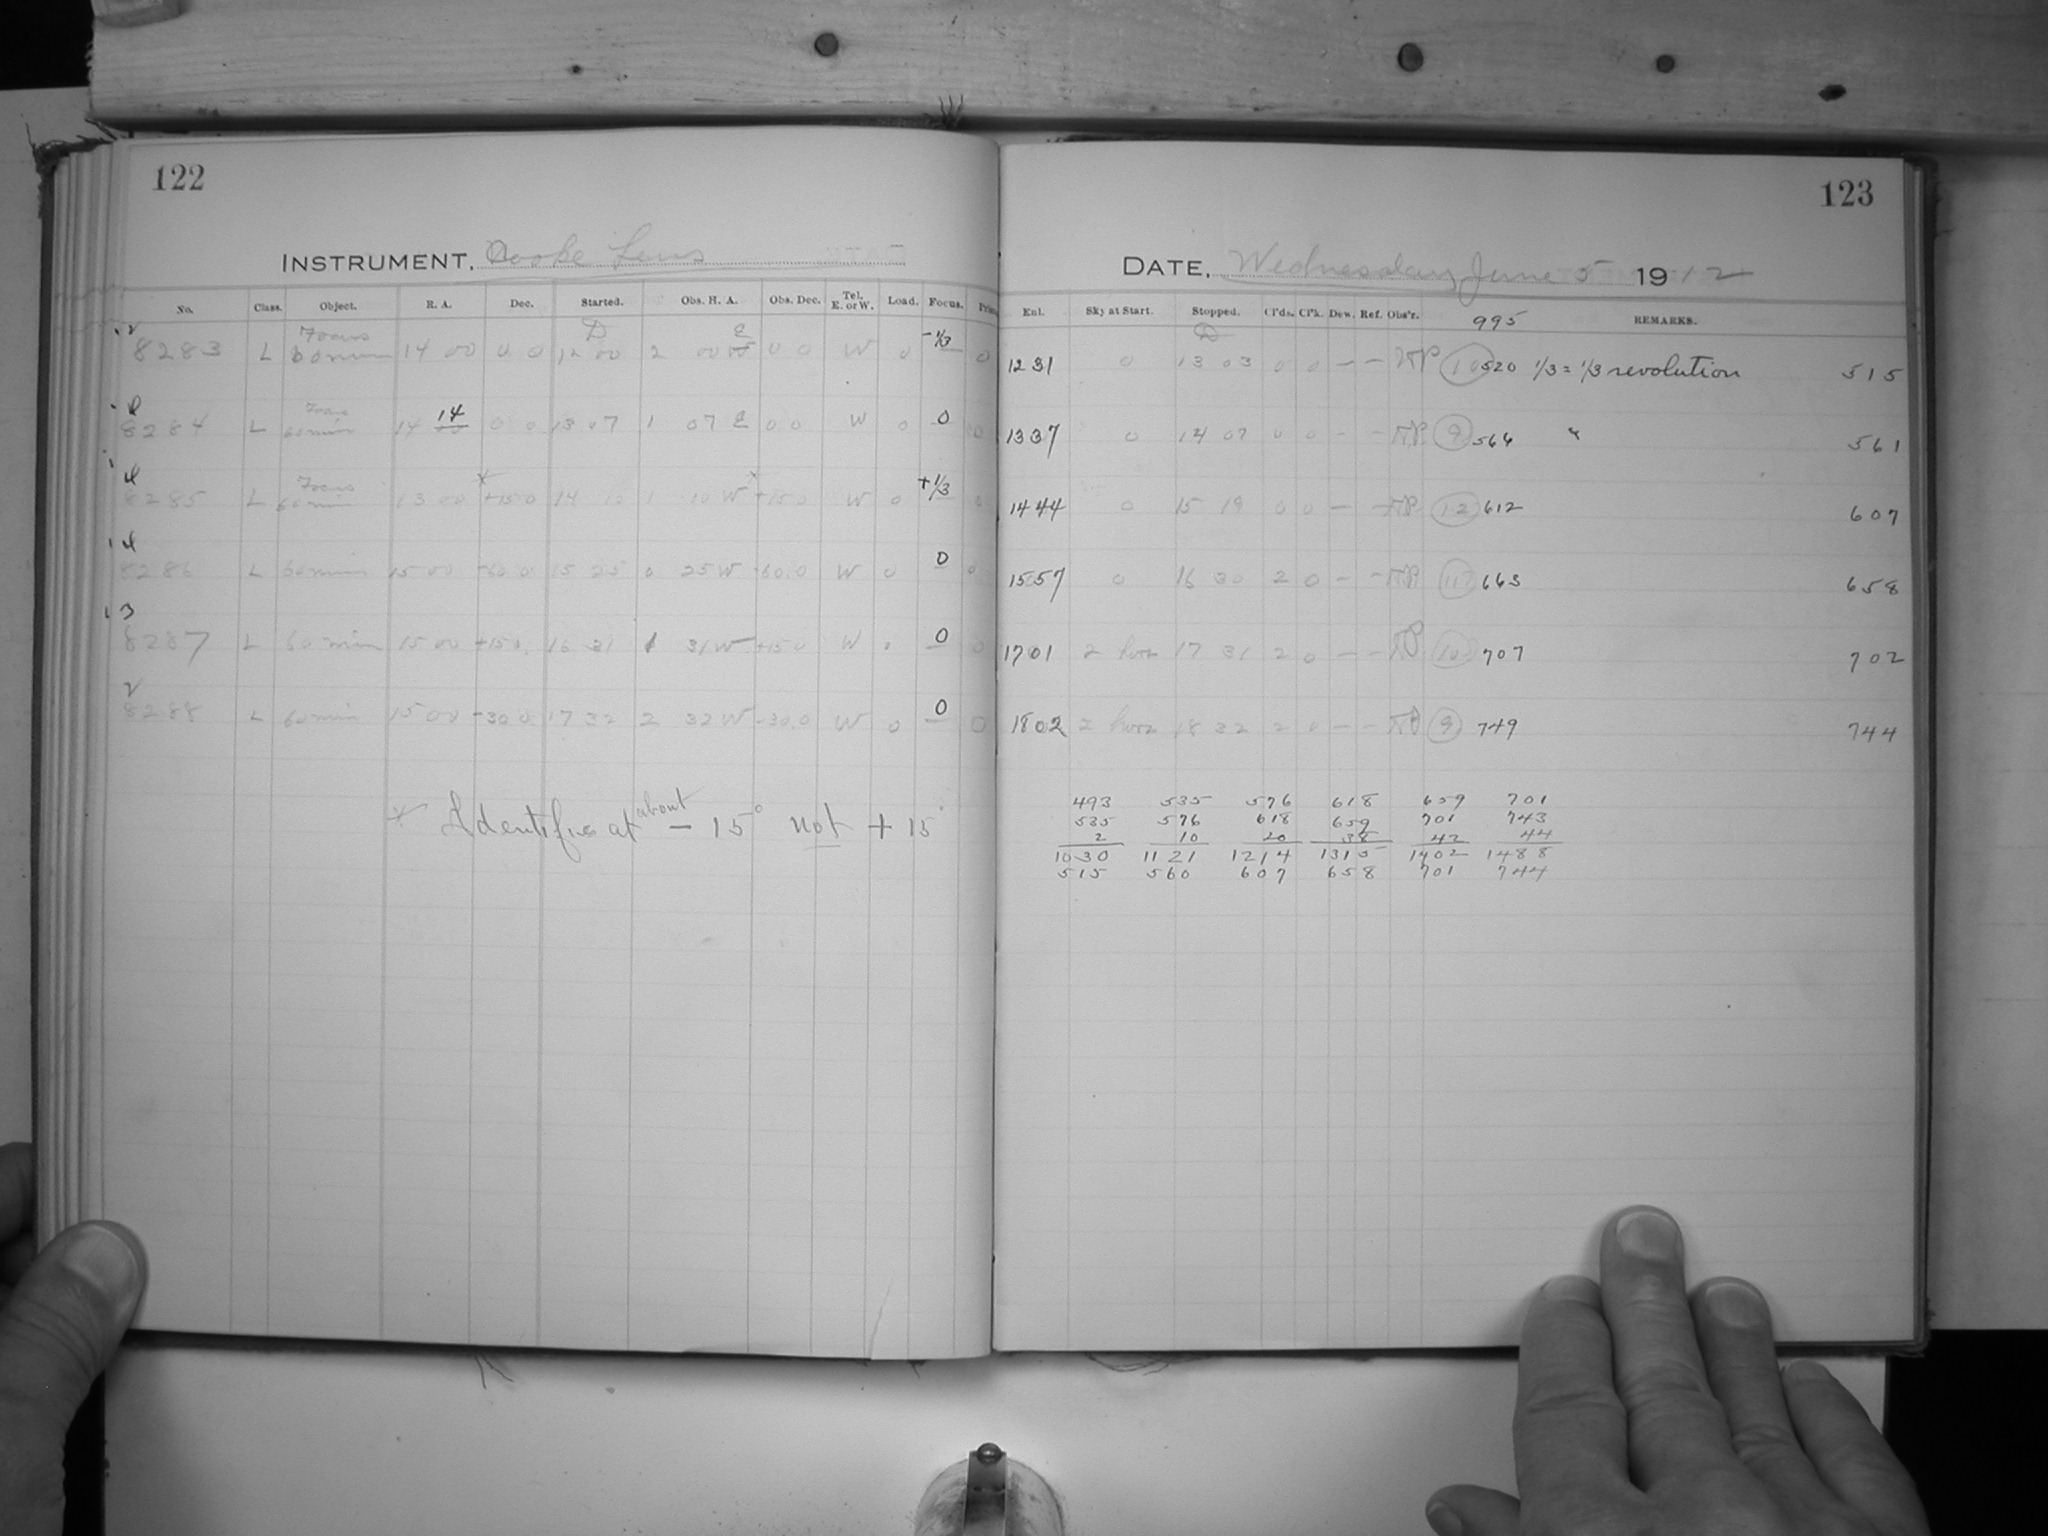 122
INSTRUMENT, Cooke Lens
No. Class. Object. R. A. Dec. Started. Obs. H. A. Obs. Dec. Tel. E. or W. Load. Focus.
8283 L Focus 60 min 14 00 0 0 12 00 2 00 E 0 0 W 0 -1/3 0
8284 L Focus 60 min 14 14 0 0 13 07 1 07 E 0 0 W 0 0 0
8285 L Focus 60 min 13 00 +15 0 14 1 10 W +15 0 W 0 +1/3 0
8286 L 60 min 15 00 -60 0 15 25 0 25 W -60.0 W 0 0 0
8287 L 60 min 15 00 +15 0 16 31 1 31 W +15 0 W 0 0 0
8288 L 60 min 15 00 -30 0 17 32 2 32 W -30.0 W 0 0 0
* Identifies at about - 15° not + 15°
123
DATE, Wednesday June 5 1912
Enl. Sky at Start. Stopped. Cl'ds. Cl'k. Dew. Ref. Obs'r. 995 REMARKS.
1231 0 13 03 0 0 - - 10 520 1/3 = 1/3 revolution 515
1337 0 14 07 0 0 - - 9 566 " 561
1444 0 15 19 0 0 - - 12 612 607
1557 0 16 30 2 0 - - 11 663 658
1701 2 hor 17 31 2 0 - - 10 707 702
1802 2 hor 18 32 2 0 - - 9 749 744
493 535 576 618 659 701
535 576 618 659 701 743
2 10 20 38 42 44
1030 1121 1214 1315 1402 1488
515 560 607 658 701 744